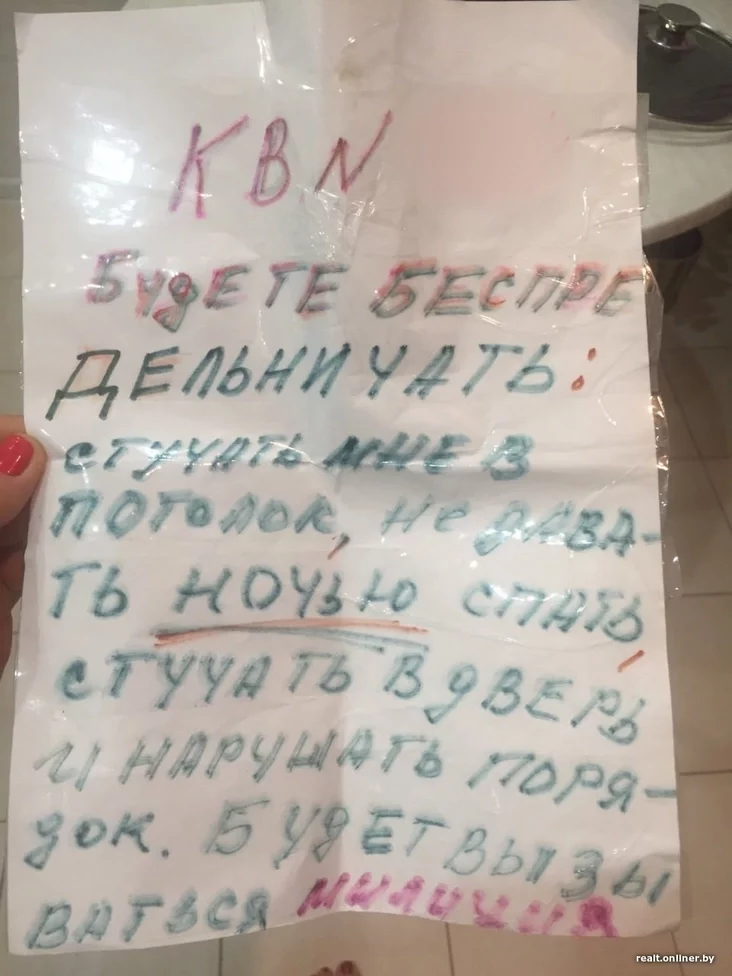 КВ. N
БУДЕТЕ БЕСПРЕ
ДЕЛЬНИЧАТЬ:
СТУЧАТЬ МНЕ В
ПОТОЛОК, НЕ ДАВА-
ТЬ НОЧЬЮ СПАТЬ,
СТУЧАТЬ В ДВЕРЬ
И НАРУШАТЬ ПОРЯ-
ДОК. БУДЕТ ВЫЗЫ
ВАТЬСЯ МИЛИЦИЯ
realt.onliner.by